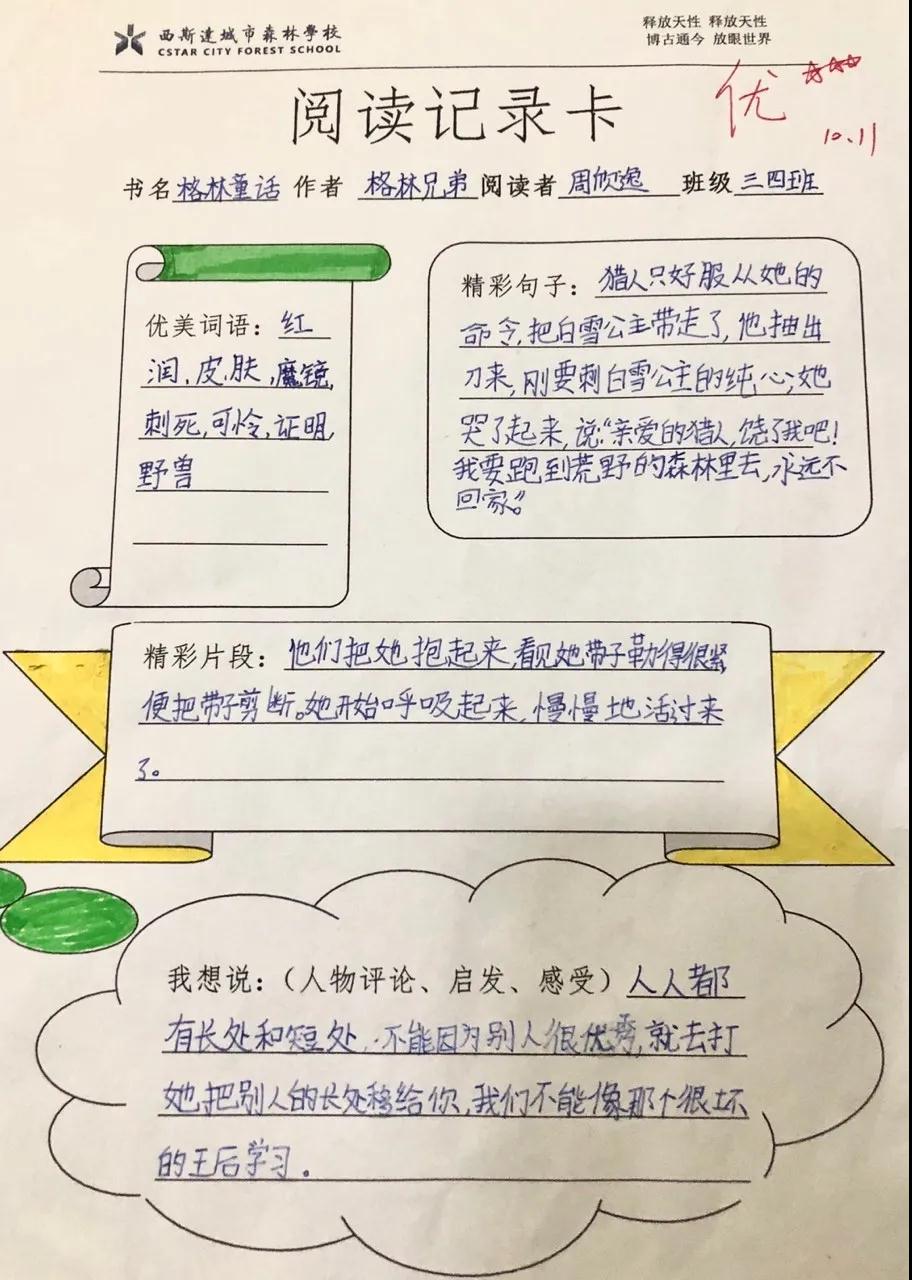 西斯达城市森林学校
CSTAR CITY FOREST SCHOOL
释放天性 释放天性
博古通今 放眼世界
优
10.11
阅读记录卡
书名格林童话 作者 格林兄弟 阅读者 周欣逸 班级 三四班
优美词语：红
润,皮肤,魔镜,
刺死,可怜,证明,
野兽
精彩句子：猎人只好服从她的
命令,把白雪公主带走了,他抽出
刀来,刚要刺白雪公主的纯心,她
哭了起来,说:“亲爱的猎人,饶了我吧!
我要跑到荒野的森林里去,永远不
回家。”
精彩片段：他们把她抱起来,看见她带子勒得很紧
便把带子剪断。她开始呼吸起来,慢慢地活过来
了。
我想说：（人物评论、启发、感受）人人都
有长处和短处,不能因为别人很优秀,就去打
她把别人的长处移给你,我们不能像那个很坏
的王后学习.